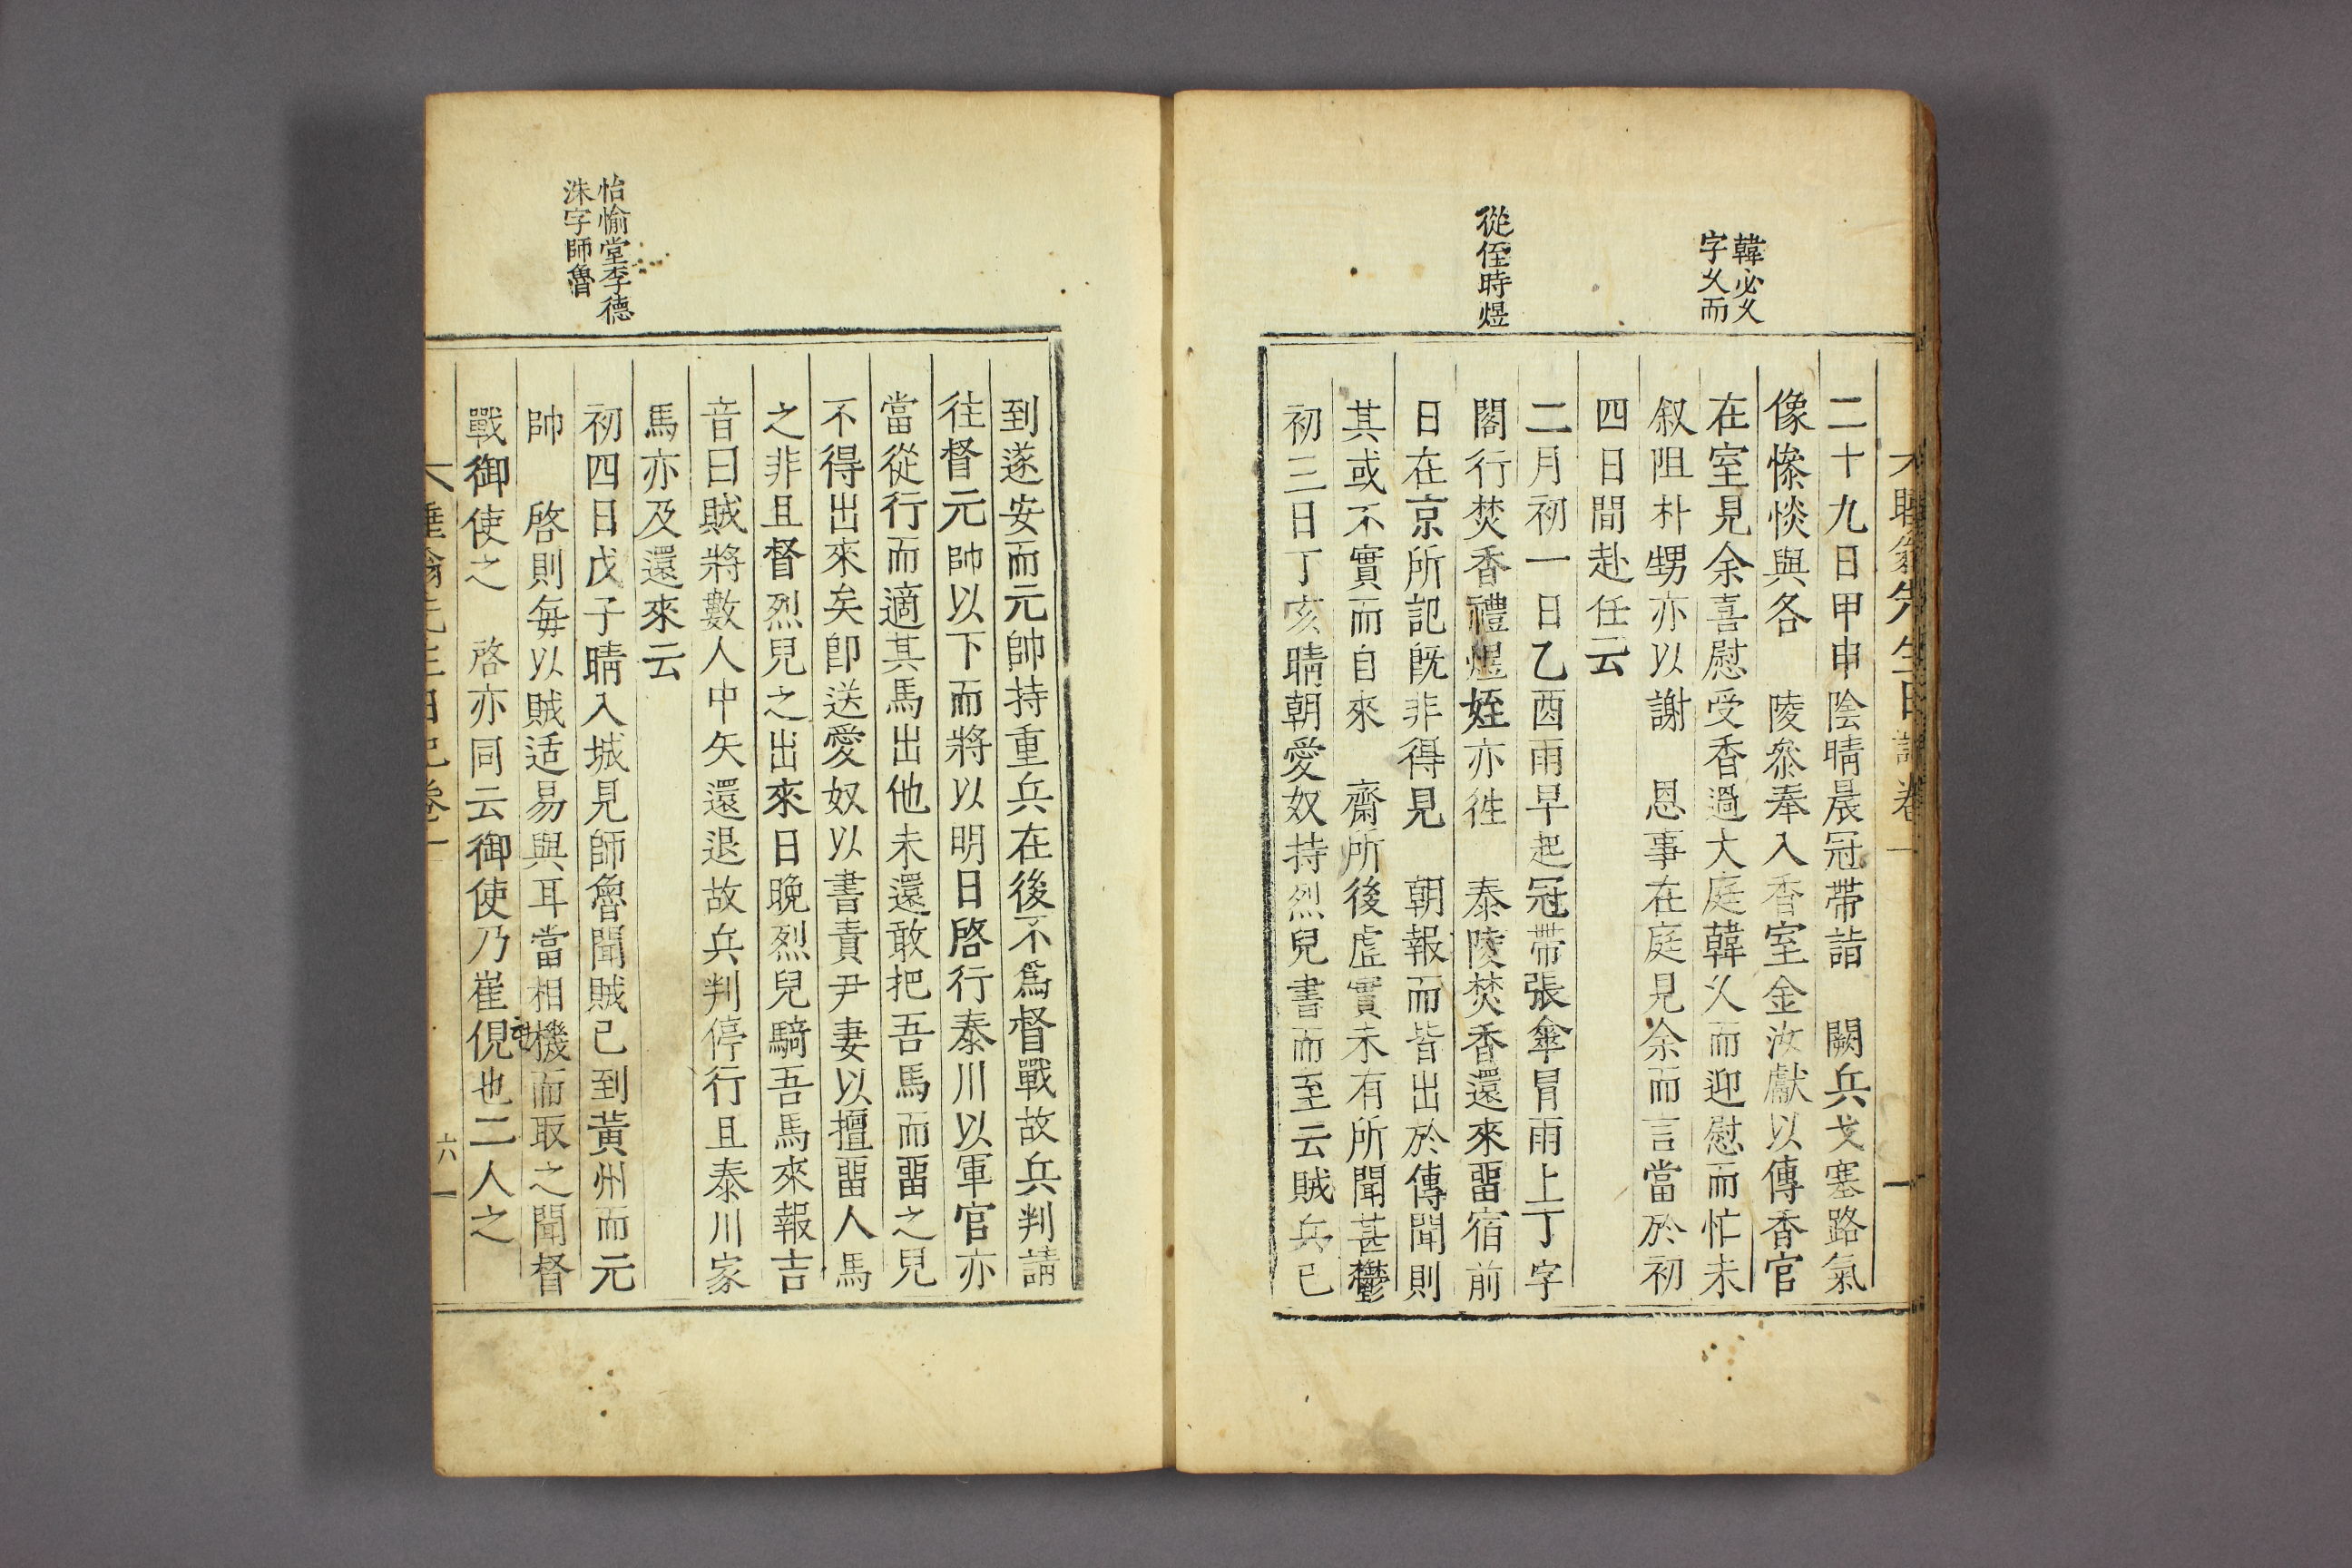 韓必久
字久而
從侄時煜
二十九日甲申陰晴晨冠帶詣 闕兵戈塞路氣
像慘惔與各 陵叅奉入香室金汝獻以傳香官
在室見余喜慰受香過大庭韓久而迎慰而忙未
叙阻朴甥亦以謝 恩事在庭見余而言當於初
四日間赴任云
二月初一日乙酉雨早起冠帶張傘冒雨上丁字
閣行焚香禮煜姪亦徃 泰陵焚香還來畱宿前
日在京所記旣非得見 朝報而皆出於傳聞則
其或不實而自來 齋所後虛實未有所聞甚鬱
初三日丁亥晴朝愛奴持烈兒書而至云賊兵已
怡愉堂李德
洙字師魯
到遂安而元帥持重兵在後不爲督戰故兵判請
往督元帥以下而將以明日啓行泰川以軍官亦
當從行而適其馬出他未還敢把吾馬而畱之兒
不得出來矣卽送愛奴以書責尹妻以擅畱人馬
之非且督烈兒之出來日晚烈兒騎吾馬來報吉
音曰賊將數人中矢還退故兵判停行且泰川家
馬亦及還來云
初四日戊子晴入城見師魯聞賊已到黃州而元
帥 啓則每以賊适易與耳當相機而取之聞督
戰御使之 啓亦同云御使乃崔俔也二人之
六